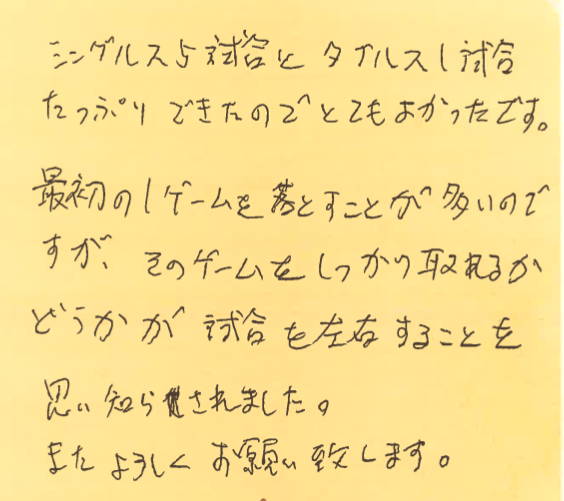 シングルス5試合とダブルス1試合
たっぷりできたのでとてもよかったです。
最初の1ゲームを落とすことが多いので
すが、そのゲームをしっかり取れるか
どうかが試合を左右することを
思い知らされました。
またよろしくお願い致します。